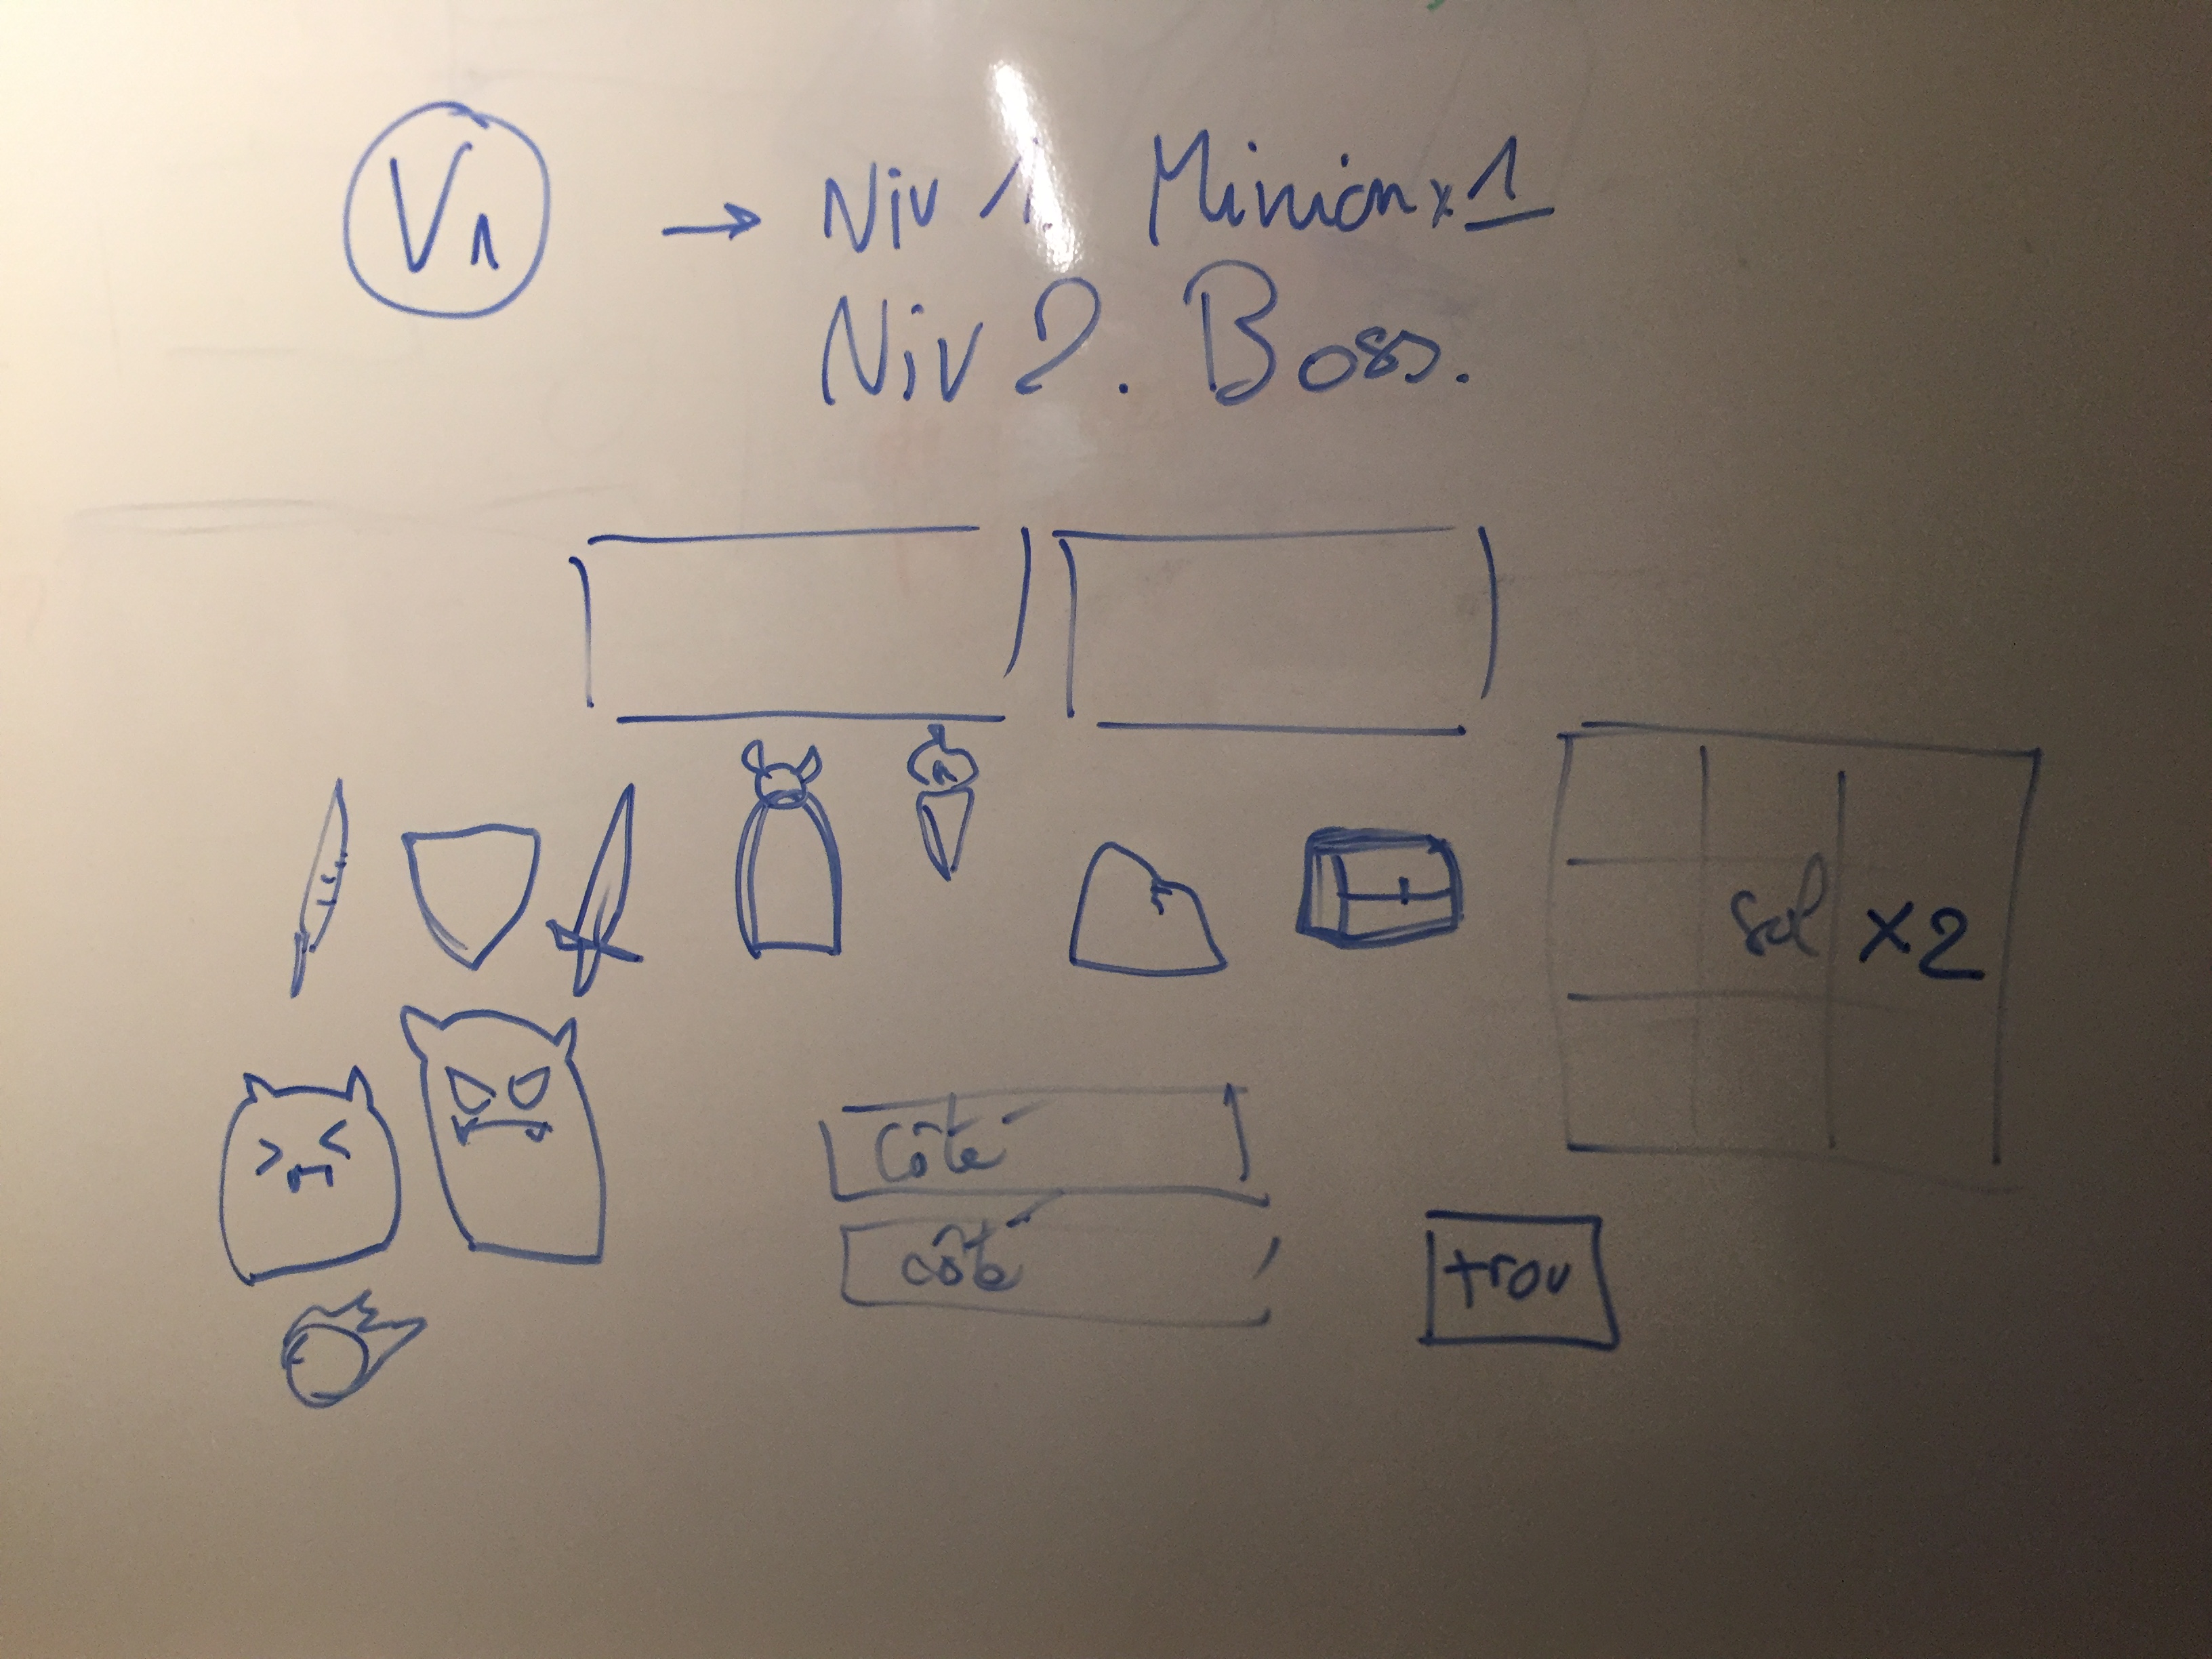 V1
→ Niv 1. Minion x 1
Niv 2. Boss.
sol x2
Côté
côté
trou